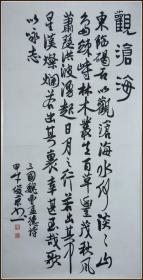 觀滄海
東臨碣石以觀滄海水何澹澹山
島竦峙林木叢生百草豐茂秋風
蕭瑟洪波湧起日月之行若出其中
星漢燦爛若出其裏幸甚至哉歌
以詠志
三國魏曹孟德詩
甲午